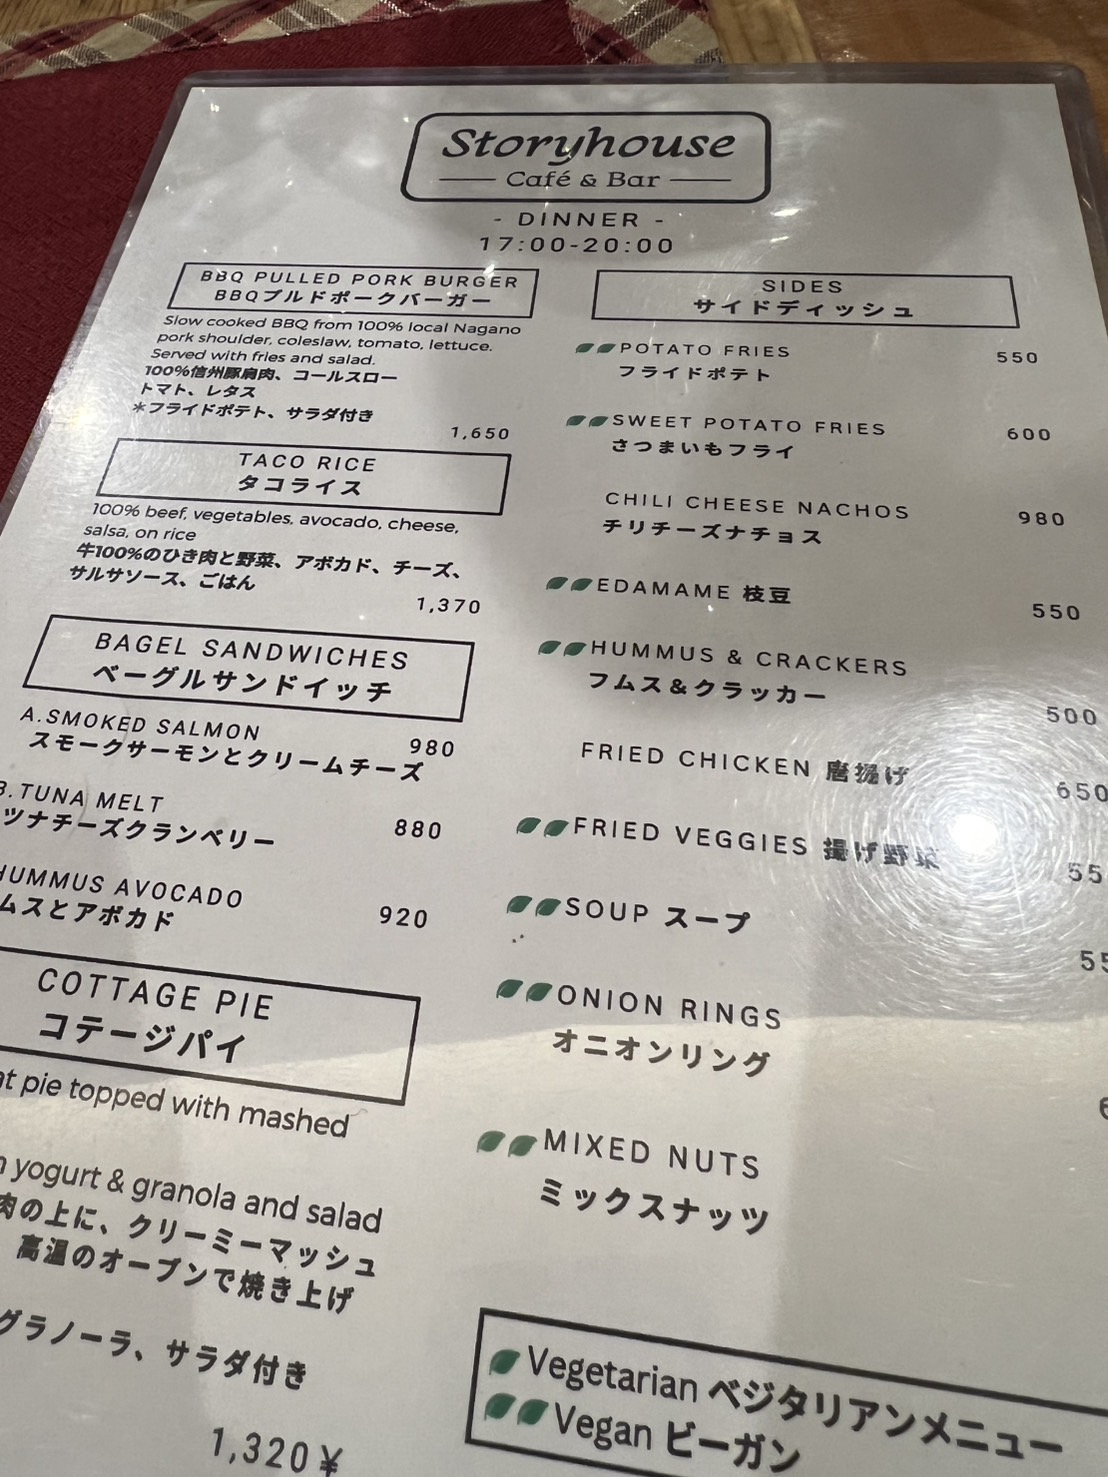 Storyhouse
Café & Bar
- DINNER -
17:00-20:00
BBQ PULLED PORK BURGER
BBQプルドポークバーガー
Slow cooked BBQ from 100% local Nagano
pork shoulder, coleslaw, tomato, lettuce.
Served with fries and salad.
100%信州豚肩肉、コールスロー
トマト、レタス
*フライドポテト、サラダ付き
1,650
TACO RICE
タコライス
100% beef, vegetables, avocado, cheese,
salsa, on rice
牛100%のひき肉と野菜、アボカド、チーズ、
サルサソース、ごはん
1,370
BAGEL SANDWICHES
ベーグルサンドイッチ
A.SMOKED SALMON
スモークサーモンとクリームチーズ
980
B.TUNA MELT
ツナチーズクランベリー
880
HUMMUS AVOCADO
ムスとアボカド
920
COTTAGE PIE
コテージパイ
pie topped with mashed
yogurt & granola and salad
肉の上に、クリーミーマッシュ
高温のオーブンで焼き上げ
グラノーラ、サラダ付き
1,320¥
SIDES
サイドディッシュ
POTATO FRIES 550
フライドポテト
SWEET POTATO FRIES 600
さつまいもフライ
CHILI CHEESE NACHOS 980
チリチーズナチョス
EDAMAME 枝豆 550
HUMMUS & CRACKERS
フムス&クラッカー
500
FRIED CHICKEN 唐揚げ 650
FRIED VEGGIES 揚げ野菜 55
SOUP スープ 55
ONION RINGS
オニオンリング
6
MIXED NUTS
ミックスナッツ
Vegetarian ベジタリアンメニュー
Vegan ビーガン